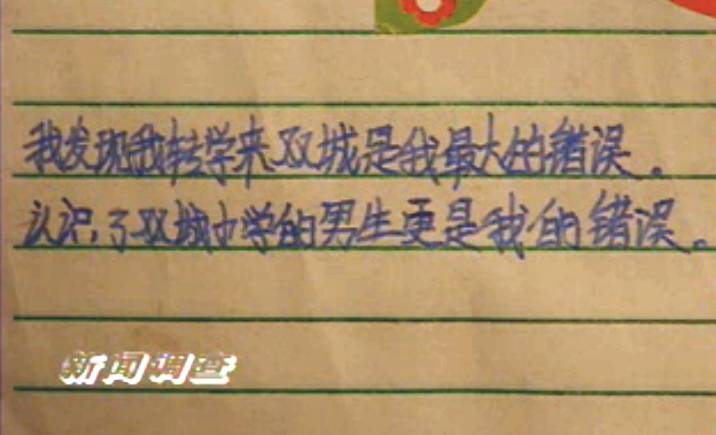 我发现我转学来双城是我最大的错误。
认识了双城中学的男生更是我的错误。
新闻调查